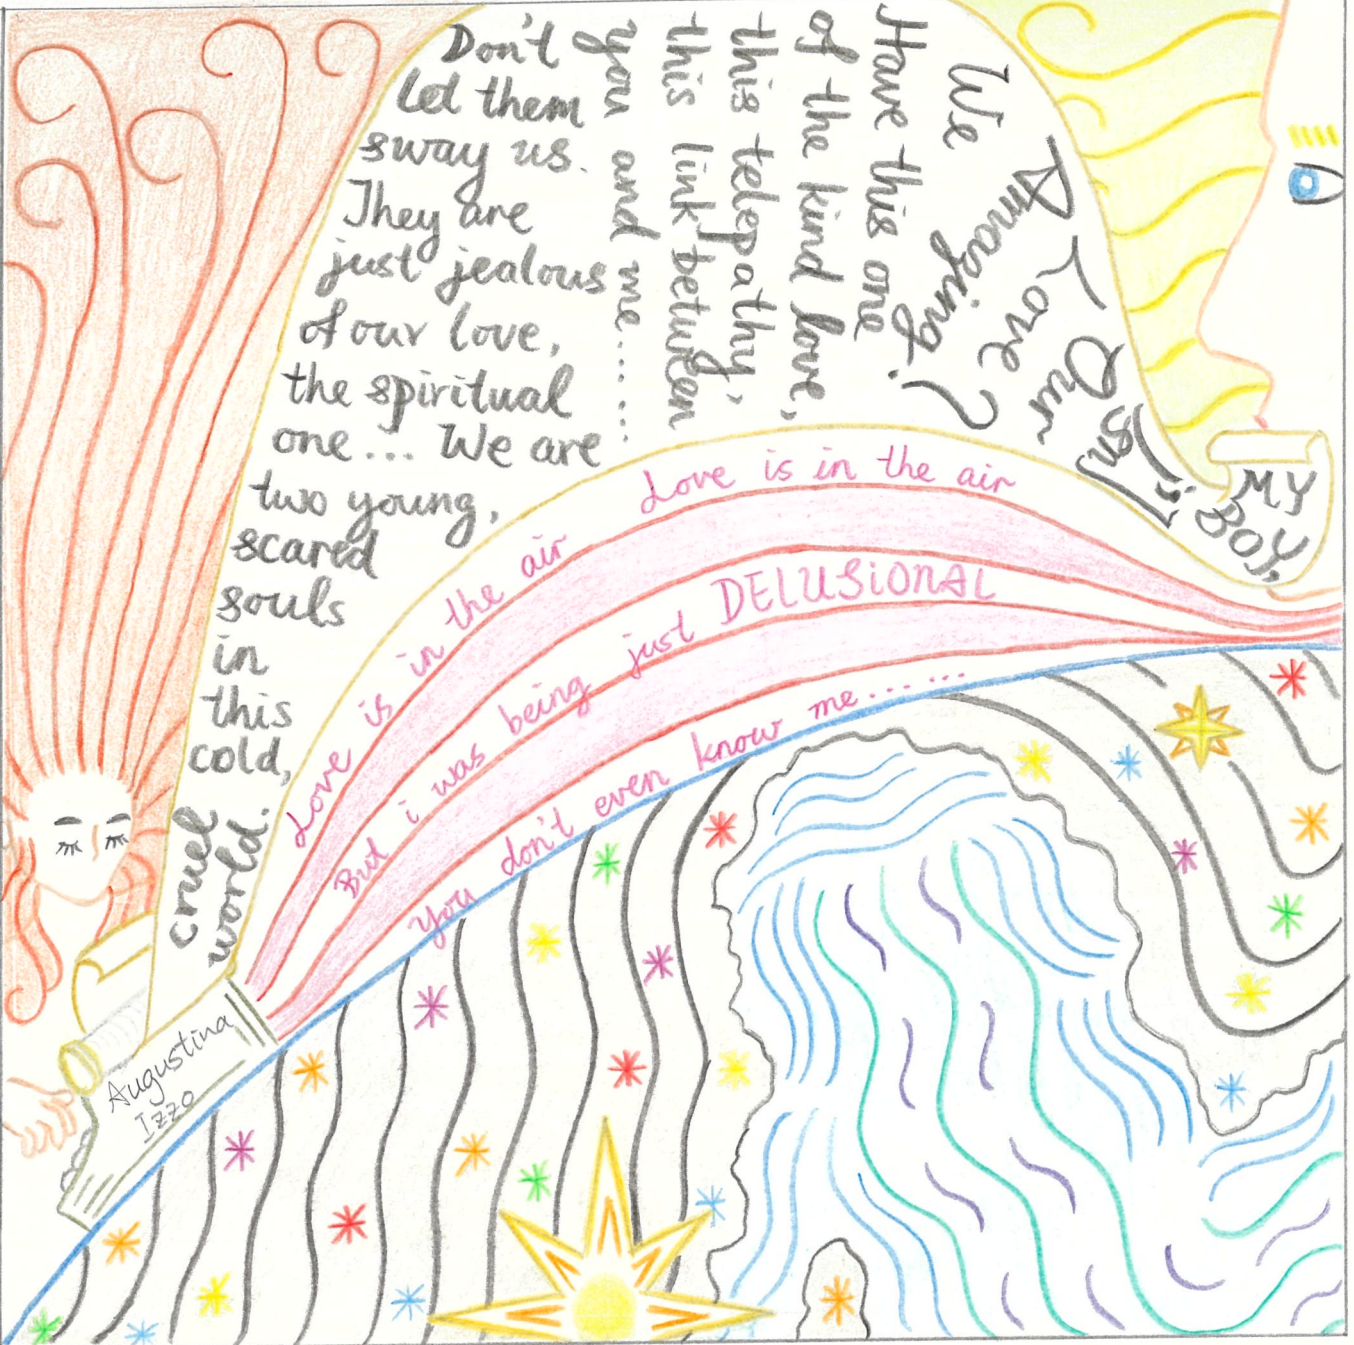 MY
BOY,
Isn't
Our
Love
Amazing?
We
Have this one
of the kind love,
this telepathy,
this link between
you and me......
Don't
let them
sway us.
They are
just jealous
of our love,
the spiritual
one... We are
two young,
scared
souls
in
this
cold,
cruel
world.
Love is in the air Love is in the air
But i was being just DELUSiONAL
You don't even know me......
Augustina
Izzo